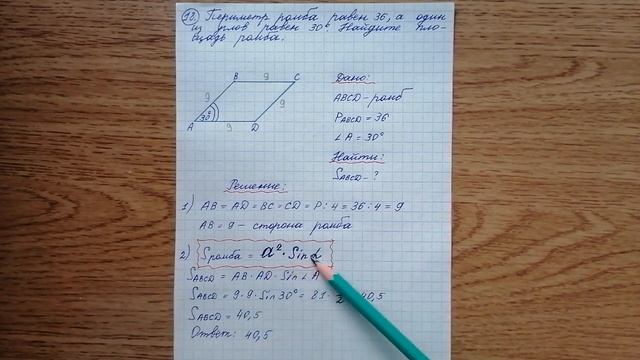 18. Периметр ромба равен 36, а один
из углов равен 30°. Найдите пло-
щадь ромба.
B 9 C
9 9
30°
A 9 D
Дано:
ABCD - ромб
PABCD = 36
∠A = 30°
Найти:
SABCD - ?
Решение:
1) AB = AD = BC = CD = P : 4 = 36 : 4 = 9
AB = 9 - сторона ромба
2) Sромба = a² · Sin α
SABCD = AB · AD · Sin ∠A
SABCD = 9 · 9 · Sin 30° = 81 · 2 40,5
SABCD = 40,5
Ответ: 40,5